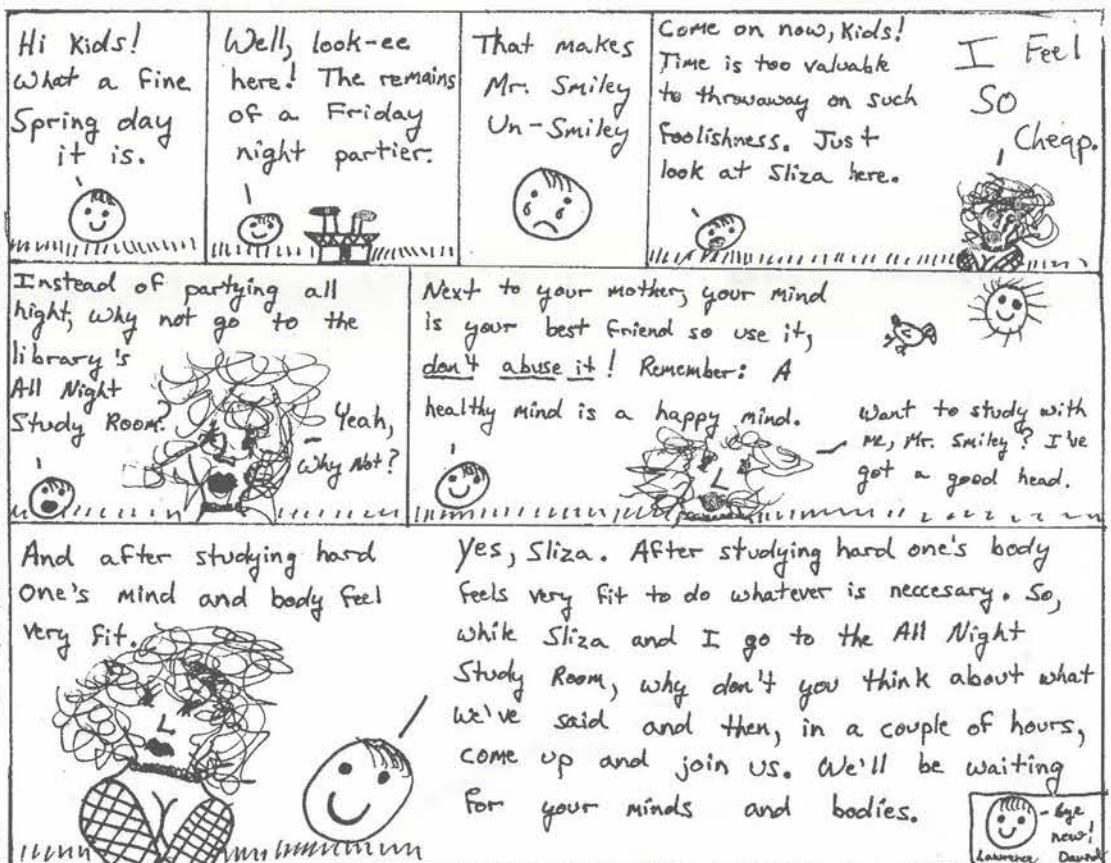 Hi Kids!
What a fine
Spring day
it is.
Well, look-ee
here! The remains
of a Friday
night partier.
That makes
Mr. Smiley
Un-Smiley
Come on now, Kids!
Time is too valuable
to throwaway on such
foolishness. Just
look at Sliza here.
I Feel
So
Cheap.
Instead of partying all
night, why not go to the
library's
All Night
Study Room?
Yeah,
Why Not?
Next to your mother, your mind
is your best friend so use it,
don't abuse it! Remember: A
healthy mind is a happy mind.
Want to study with
me, Mr. Smiley? I've
got a good head.
And after studying hard
one's mind and body feel
very fit.
Yes, Sliza. After studying hard one's body
feels very fit to do whatever is neccesary. So,
while Sliza and I go to the All Night
Study Room, why don't you think about what
we've said and then, in a couple of hours,
come up and join us. We'll be waiting
for your minds and bodies.
Bye
now!
Lawrence